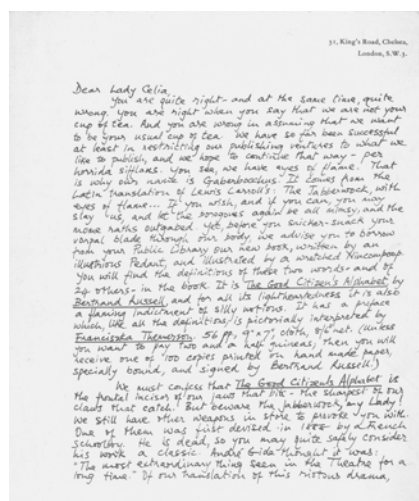 31, King's Road, Chelsea,
London, S.W.3.
Dear Lady Celia,
You are quite right - and at the same time, quite
wrong. You are right when you say that we are not your
cup of tea. And you are wrong in assuming that we want
to be your usual cup of tea. We have so far been successful
at least in restricting our publishing ventures to what we
like to publish, and we hope to continue that way - per
horrida sifflans. You see, we have eyes of flame. That
is why our name is Gaberbocchus. It comes from the
Latin translation of Lewis Carroll's: The Jabberwock, with
eyes of flame... If you wish, and if you can, you may
slay us, and let the borogoves again be all mimsy, and the
mome raths outgabed. Yet, before you snicker-snack your
vorpal blade through our body we advise you to borrow
from your Public Library our new book, written by an
illustrious Pedant, and illustrated by a wretched Nincompoop.
You will find the definitions of these two words - and of
24 others - in the book. It is The Good Citizen's Alphabet by
Bertrand Russell, and for all its lightheartedness it is also
a flaming indictment of silly notions. It has a preface
which, like all the definitions, is pictorially interpreted by
Franciszka Themerson. 56 pp, 9" x 7", cloth, 8/6 net. (Unless
you want to pay two and a half guineas; then you will
receive one of 100 copies printed on hand made paper,
specially bound, and signed by Bertrand Russell.)
We must confess that The Good Citizen's Alphabet is
the frontal incisor of our jaws that bite - the sharpest of our
claws that catch. But beware the Jabberwock, my Lady!
We still have other weapons in store to provoke you with.
One of them was first devised in 1888 by a French
Schoolboy. He is dead, so you may quite safely consider
his work a classic. André Gide thought it was:
"The most extraordinary thing seen in the Theatre for a
long time." Of our translation of this riotous drama,